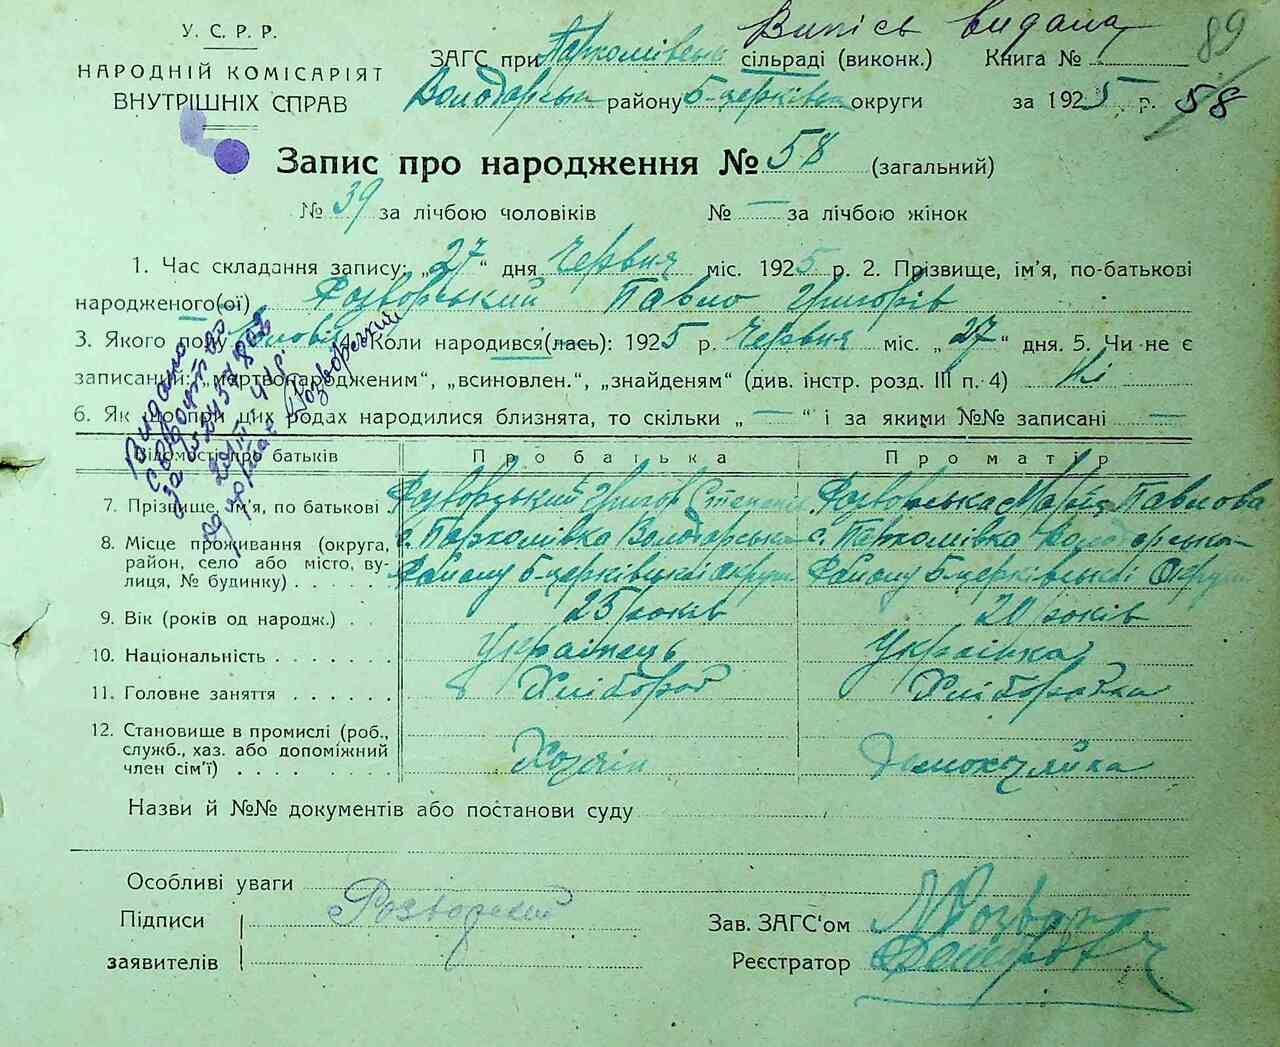 Випись видана
89
У. С. Р. Р.
НАРОДНІЙ КОМІСАРІЯТ
ВНУТРІШНІХ СПРАВ
ЗАГС при Пархомівськ сільраді (виконк.) Книга №
Володарськ району Б-церківськ округи за 1925 р. 58
Запис про народження № 58 (загальний)
№ 39 за лічбою чоловіків № — за лічбою жінок
1. Час складання запису: „27“ дня Червня міс. 1925 р. 2. Прізвище, ім'я, по-батькові
народженого(ої) Розворський Павло Григорів
3. Якого полу 4. Коли народився(лась): 1925 р. Червня міс. „27“ дня. 5. Чи не є
записаний: „мертвонародженим“, „всиновлен.“, „знайденям“ (див. інстр. розд. III п. 4) Ні
6. Як що при цих родах народилися близнята, то скільки „ — “ і за якими №№ записані —
Видано
Розворский
Відомості про батьків Про батька Про матір
7. Прізвище, ім'я, по батькові . Розворський Григор Степанів Розворська Марія Павлова
8. Місце проживання (округа, с. Пархомівка Володарська с. Пархомівка Володарська
район, село або місто, ву-
лиця, № будинку) . . . . . . Району Б-церківської округи Району Б-церківської Округи
9. Вік (років од народж.) . 25 років 20 років
10. Національність . . . . . . . Українець Українка
11. Головне заняття . . . . . . Хлібороб Хліборобка
12. Становище в промислі (роб.,
служб., хаз. або допоміжний
член сім'ї) . . . . . . . . . Хозяїн Домохазяйка
Назви й №№ документів або постанови суду
Особливі уваги
Підписи Розворский Зав. ЗАГС'ом
заявителів Реєстратор